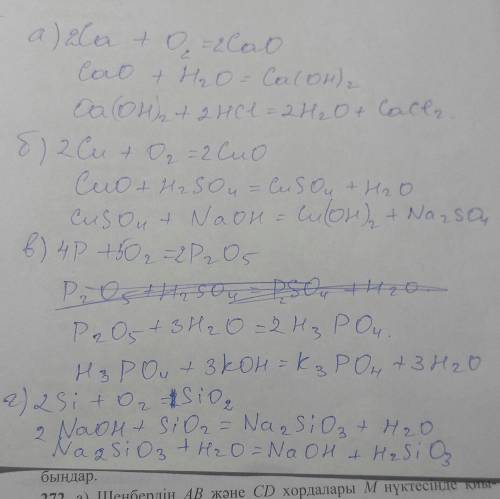 а) 2Ca + O₂ = 2CaO
CaO + H₂O = Ca(OH)₂
Ca(OH)₂ + 2HCl = 2H₂O + CaCl₂.
б) 2Cu + O₂ = 2CuO
CuO + H₂SO₄ = CuSO₄ + H₂O
CuSO₄ + NaOH = Cu(OH)₂ + Na₂SO₄
в) 4P + 5O₂ = 2P₂O₅
P₂O₅ + H₂SO₄ = P₂SO₄ + H₂O.
P₂O₅ + 3H₂O = 2H₃PO₄.
H₃PO₄ + 3KOH = K₃PO₄ + 3H₂O
г) 2Si + O₂ = SiO₂
2NaOH + SiO₂ = Na₂SiO₃ + H₂O
Na₂SiO₃ + H₂O = NaOH + H₂SiO₃
быңдар.
272. а) Шеңбердің AB және CD хордалары M нүктесінде